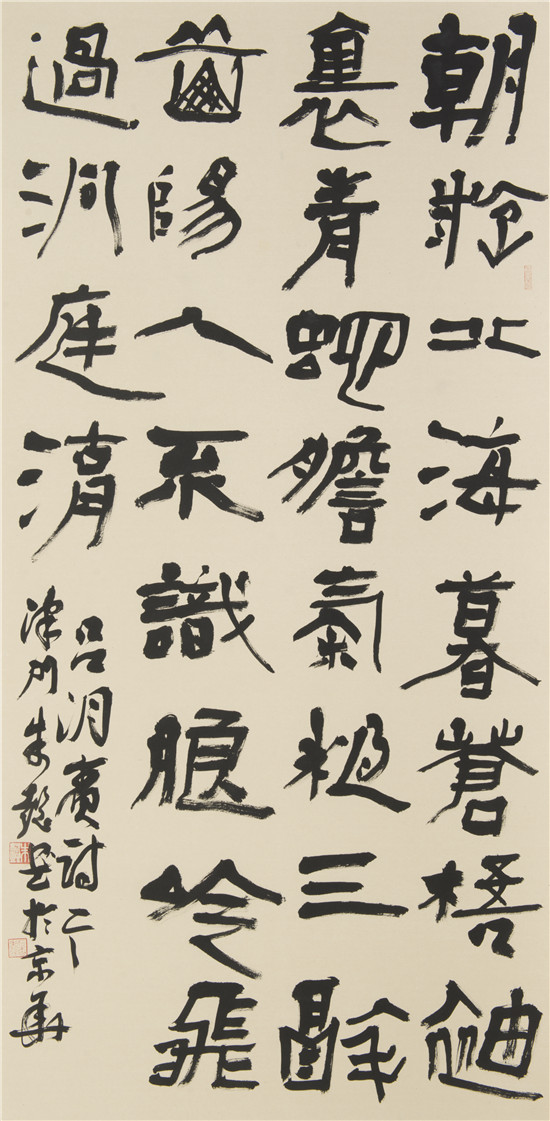 朝遊北海暮蒼梧袖
裏青蛇膽氣粗三醉
岳陽人不識朗吟飛
過洞庭湖
呂洞賓詩
津門朱懿書於京華